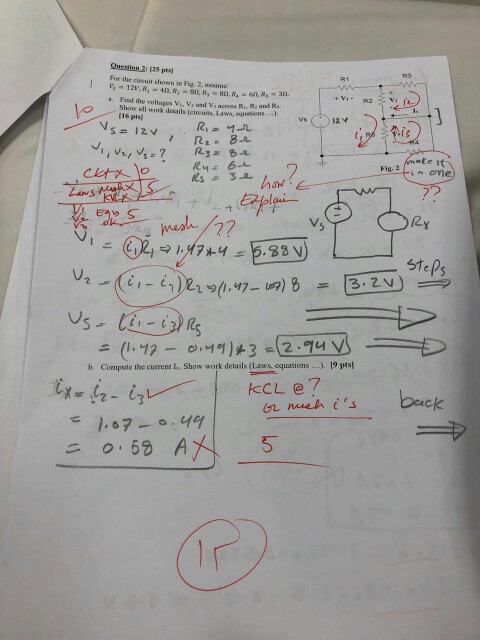 Question 2: [25 pts]
For the circuit shown in Fig. 2, assume:
Vs = 12V, R₁ = 4Ω, R₂ = 8Ω, R₃ = 8Ω, R₄ = 6Ω, R₅ = 3Ω.
a. Find the voltages V₁, V₂ and V₅ across R₁, R₂ and R₅.
Show all work details (circuits, Laws, equations …).
[16 pts]
10
R1
R3
+ V₁ -
R2
V₂
i2
Vs
12 V
i1
i3
R4
Fig. 2
make it
in one
??
Vs = 12v,
R₁ = 4Ω
R₂ = 8Ω
R₃ = 8Ω
R₄ = 6Ω
R₅ = 3Ω
V₁, V₂, V₅ = ?
CKT X 0
Laws Mesh X 5
KVL X
V₁ Eqs 5
V₂ ok
V₅
how?
Explain
Vs
Rx
mesh ??
V₁ = i₁ R₁ ⇒ 1.47*4 = 5.88V
V₂ = (i₁ - i₂) R₂ ⇒ (1.47 - 1.07) 8 = 3.2V
steps
V₅ = (i₁ - i₃) R₅
= (1.47 - 0.49)*3 = 2.94 V
b. Compute the current Iₓ. Show work details (Laws, equations …). [9 pts]
ix = i₂ - i₃
= 1.07 - 0.49
= 0.58 A X
KCL @ ?
or mesh i's
5
back
15